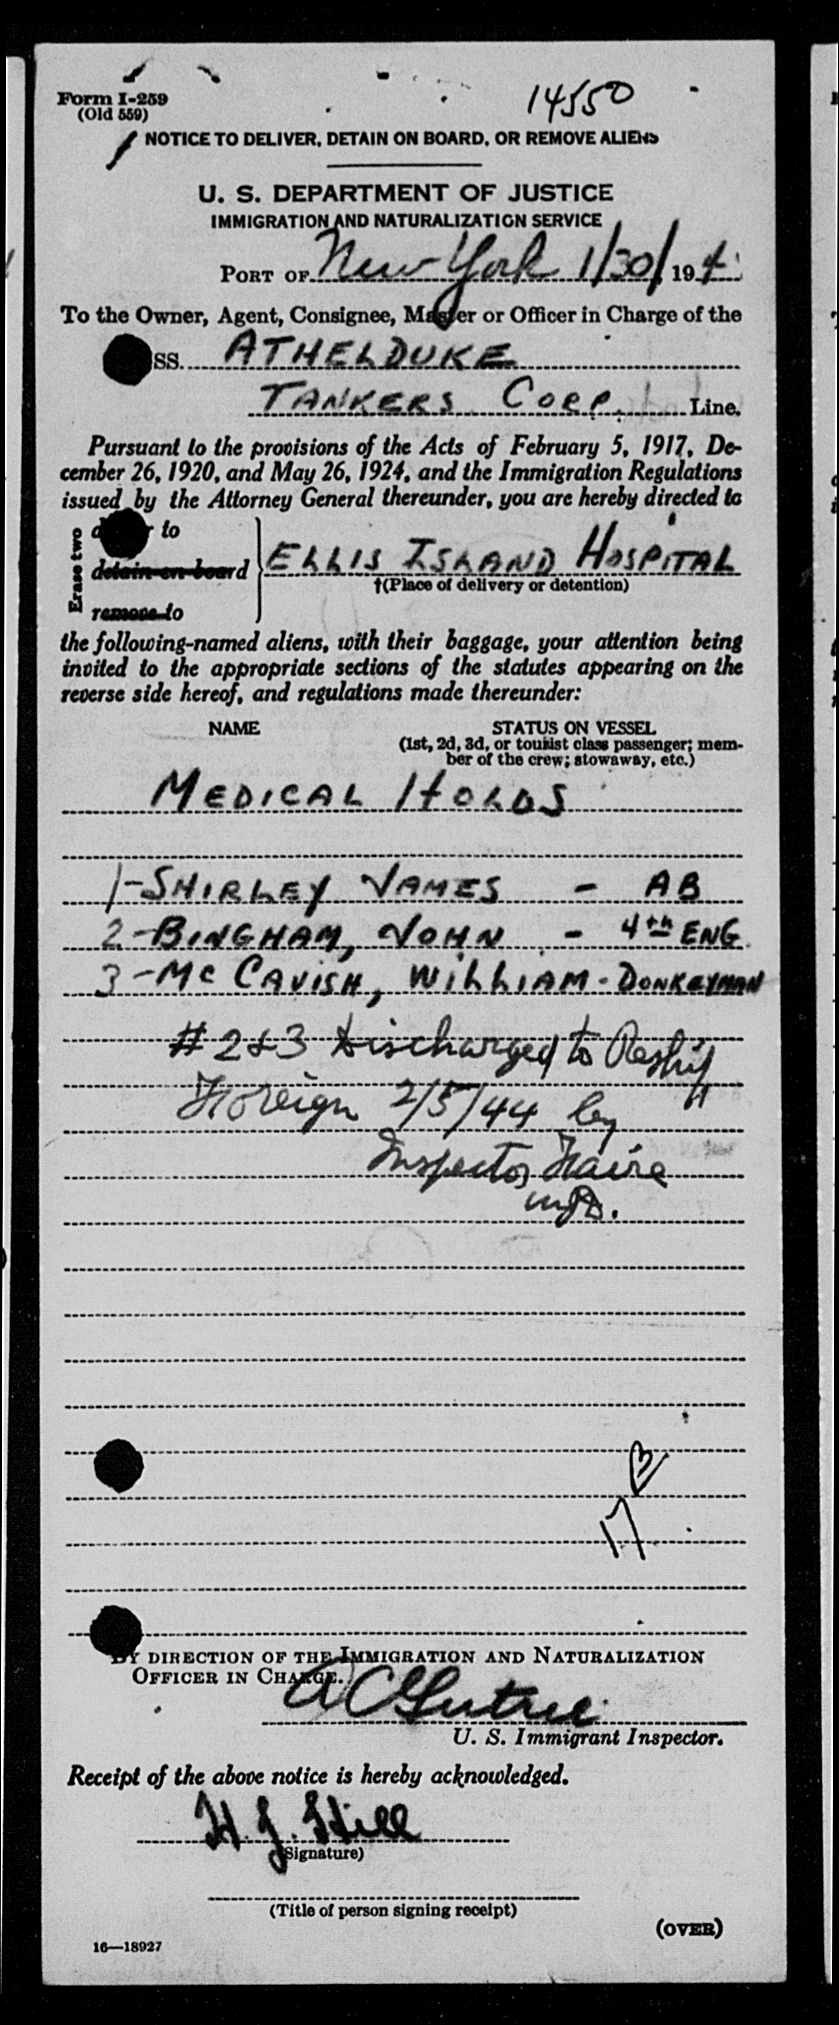 Form I-259
(Old 559)
14550
NOTICE TO DELIVER, DETAIN ON BOARD, OR REMOVE ALIENS
U. S. DEPARTMENT OF JUSTICE
IMMIGRATION AND NATURALIZATION SERVICE
PORT OF New York 1/30/, 194
To the Owner, Agent, Consignee, Master or Officer in Charge of the
SS. ATHELDUKE
TANKERS CORP. Line.
Pursuant to the provisions of the Acts of February 5, 1917, De-
cember 26, 1920, and May 26, 1924, and the Immigration Regulations
issued by the Attorney General thereunder, you are hereby directed to
Erase two
to
detain on board
remove to
ELLIS ISLAND HOSPITAL
†(Place of delivery or detention)
the following-named aliens, with their baggage, your attention being
invited to the appropriate sections of the statutes appearing on the
reverse side hereof, and regulations made thereunder:
NAME STATUS ON VESSEL
(1st, 2d, 3d, or tourist class passenger; mem-
ber of the crew; stowaway, etc.)
MEDICAL HOLDS
1-SHIRLEY JAMES - AB
2-BINGHAM, JOHN - 4th ENG.
3-Mc CAVISH, WILLIAM - DONKEYMAN
# 2 & 3 Discharged to Reship
Foreign 2/5/44 by
Inspector Haire
17
BY DIRECTION OF THE IMMIGRATION AND NATURALIZATION
OFFICER IN CHARGE.
U. S. Immigrant Inspector.
Receipt of the above notice is hereby acknowledged.
H. J. Hill
(Signature)
(Title of person signing receipt)
(OVER)
16—18927